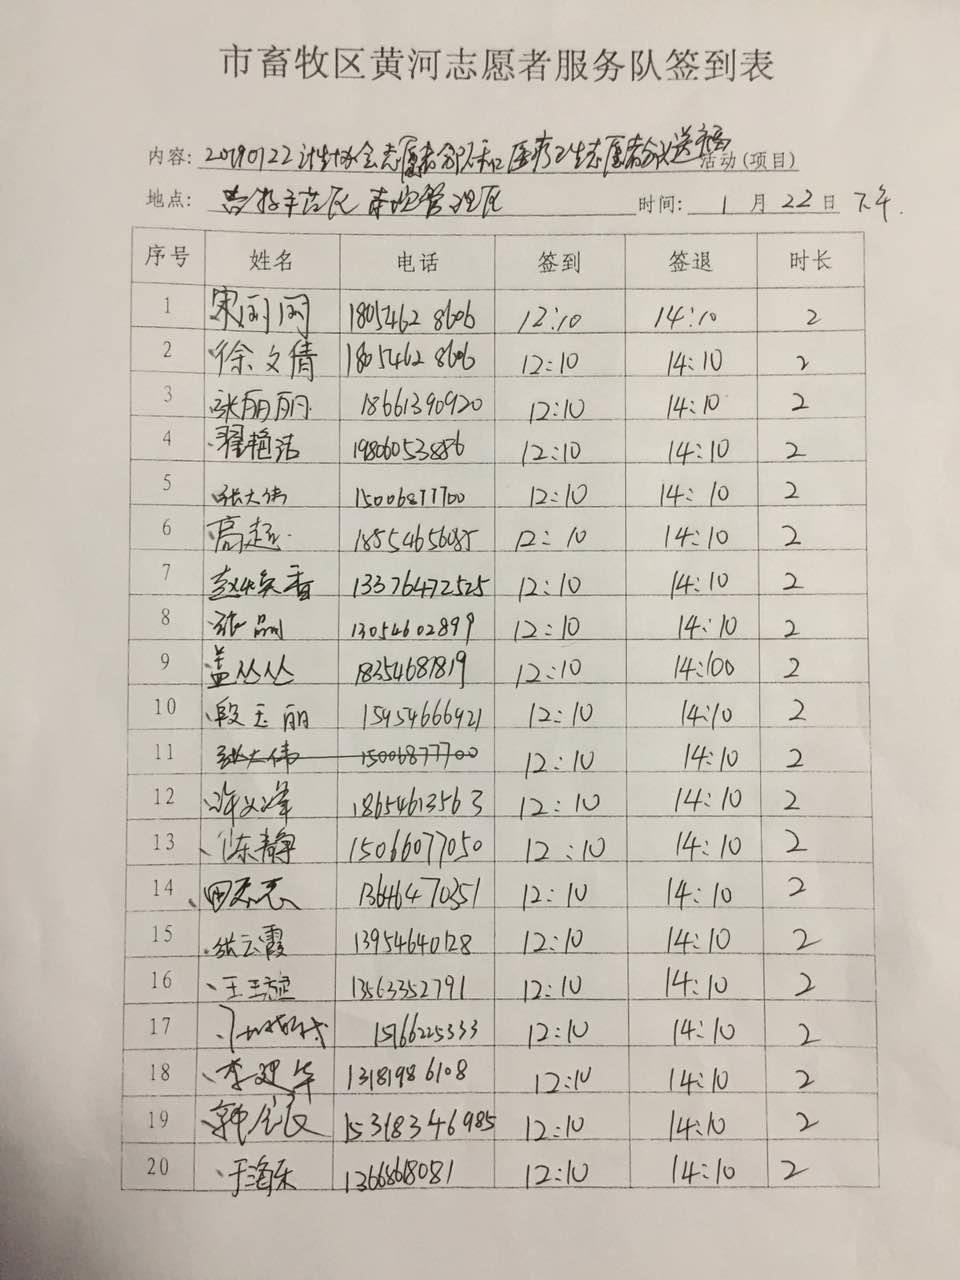 市畜牧区黄河志愿者服务队签到表
内容: 20190122 计生协会志愿者分队和医疗卫生志愿者分队送福 活动(项目)
地点: 管理区 时间: 1 月 22 日 下午.
序号 姓名 电话 签到 签退 时长
1 宋丽丽 18054628606 12:10 14:10 2
2 徐文倩 18054628606 12:10 14:10 2
3 张丽丽 18661390920 12:10 14:10 2
4 翟艳洁 19806053886 12:10 14:10 2
5 张大伟 15006877700 12:10 14:10 2
6 高超 18554656085 12:10 14:10 2
7 香 13376472525 12:10 14:10 2
8 张 13054602899 12:10 14:10 2
9 盖丛丛 18354681819 12:10 14:100 2
10 段玉丽 15954666921 12:10 14:10 2
11 张大伟 15006877700 12:10 14:10 2
12 许 峰 18654613563 12:10 14:10 2
13 陈静 15066077050 12:10 14:10 2
14 田 13646470351 12:10 14:10 2
15 张云霞 13954640128 12:10 14:10 2
16 王 13563352791 12:10 14:10 2
17 15166225333 12:10 14:10 2
18 李建华 13181986108 12:10 14:10 2
19 韩 15318346985 12:10 14:10 2
20 于海乐 13668618081 12:10 14:10 2